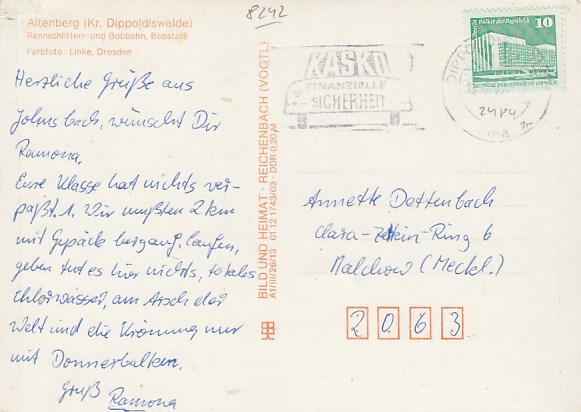 8242
Altenberg (Kr. Dippoldiswalde)
Rennschlitten- und Bobbahn, Bobstart
Farbfoto: Linke, Dresden
Herzliche Grüße aus
Johnsbach, wünscht Dir
Ramona.
Eure Klasse hat nichts ver-
paßt. 1. Wir mußten 2 km
mit Gepäck bergauf laufen,
geben tut es hier nichts, totales
Chlorwasser, am Arsch der
Welt und die Krönung nur
mit Donnerbalken.
Gruß Ramona
BILD UND HEIMAT · REICHENBACH (VOGTL)
A1/III/26/13 01 12 1743/03 · DDR 0,20 M
KASKO
FINANZIELLE
SICHERHEIT
Berlin, Palast der Republik
10
ma
Annette Dettenbach
Clara-Zetkin-Ring 6
Malchow (Meckl.)
2063